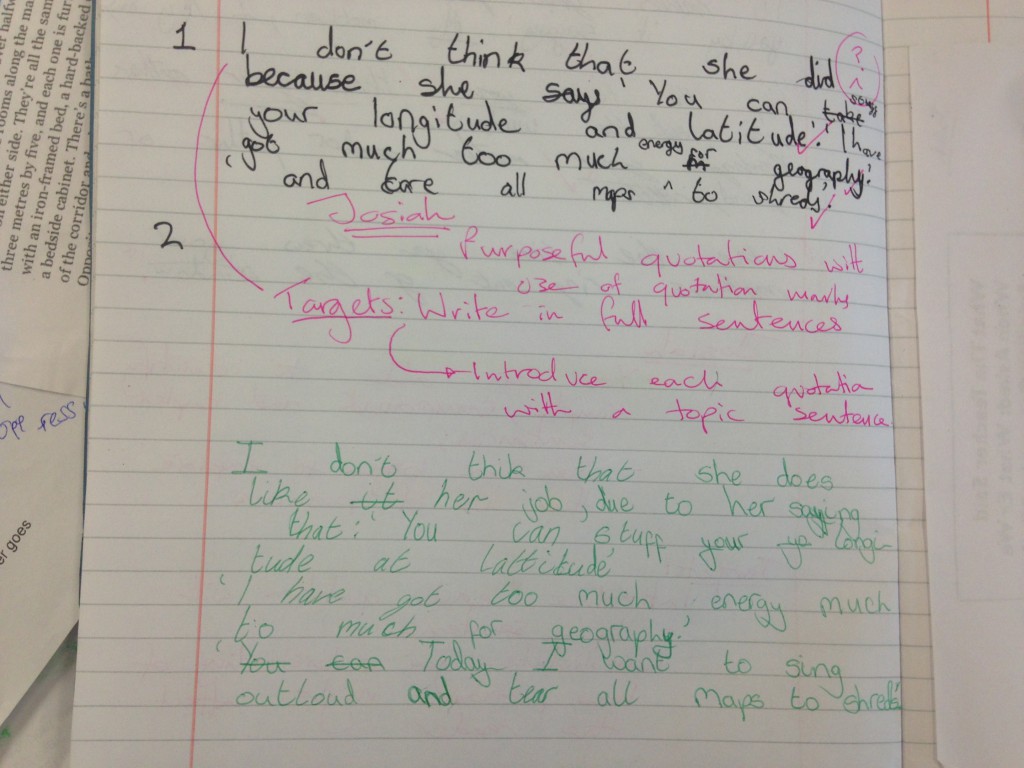 rooms along the ma
on either side. They're all the sam
three metres by five, and each one is fur
with an iron-framed bed, a hard-backed
a bedside cabinet. There's a
of the corridor and
1 I don't think that she did ?
because she says 'You can take
your longitude and latitude'. 'I have
'got much too much energy for geography.'
and tare all maps ^ to shreds'.
Josiah
2 Purposeful quotations with
use of quotation marks
Targets: Write in full sentences
Introduce each quotatio
with a topic sentence
I don't thik that she does
like it her job, due to her saying
that: 'You can stuff your yo longi-
tude at lattitude'
'I have got too much energy much
to much for geography.'
'You can Today I want to sing
outloud and tear all maps to shreds'
opp ress
er goes